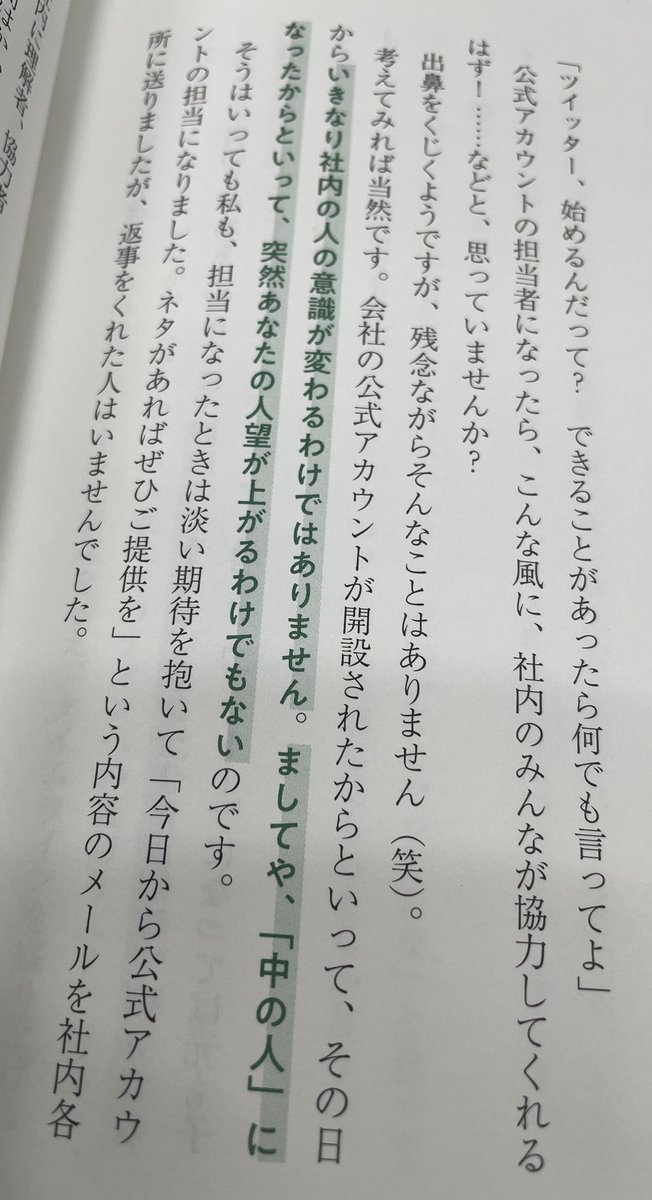 「ツイッター、始めるんだって？　できることがあったら何でも言ってよ」
公式アカウントの担当者になったら、こんな風に、社内のみんなが協力してくれる
はず！……などと、思っていませんか？
出鼻をくじくようですが、残念ながらそんなことはありません（笑）。
考えてみれば当然です。会社の公式アカウントが開設されたからといって、その日
からいきなり社内の人の意識が変わるわけではありません。ましてや、「中の人」に
なったからといって、突然あなたの人望が上がるわけでもないのです。
そうはいっても私も、担当になったときは淡い期待を抱いて「今日から公式アカウ
ントの担当になりました。ネタがあればぜひご提供を」という内容のメールを社内各
所に送りましたが、返事をくれた人はいませんでした。
理解者、協力者